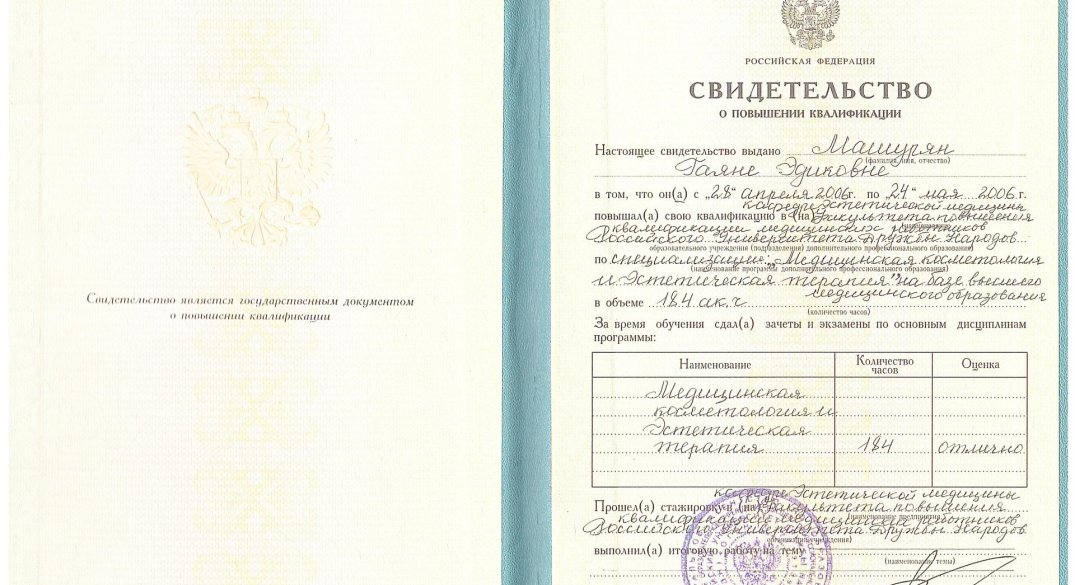 Свидетельство является государственным документом
о повышении квалификации
РОССИЙСКАЯ ФЕДЕРАЦИЯ
СВИДЕТЕЛЬСТВО
О ПОВЫШЕНИИ КВАЛИФИКАЦИИ
Настоящее свидетельство выдано Машурян
(фамилия, имя, отчество)
Гаяне Эдиковне
в том, что он(а) с „28“ апреля 2006г. по „24“ мая 2006г.
кафедре Эстетической медицины
повышал(а) свою квалификацию в (на) Факультета повышения
квалификации медицинских работников
Российского Университета Дружбы Народов
образовательного учреждения (подразделения) дополнительного профессионального образования)
по специализации: „Медицинская косметология
(наименование программы дополнительного профессионального образования)
и Эстетическая терапия" на базе высшего
медицинского образования
в объеме 184 ак.ч
(количество часов)
За время обучения сдал(а) зачеты и экзамены по основным дисциплинам
программы:
Наименование Количество часов Оценка
Медицинская
косметология и
Эстетическая
терапия 184 отлично
кафедре Эстетической медицины
Прошел(а) стажировку в (на) Факультета повышения
(наименование предприятия,
квалификации медицинских работников
Российского Университета Дружбы Народов
организации, учреждения)
выполнил(а) итоговую работу на тему
(наименование темы)